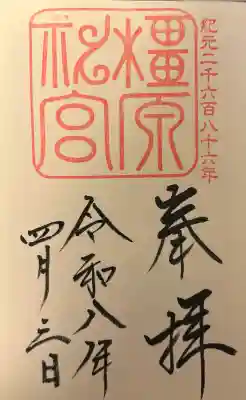 紀元二千六百八十六年
橿原
神宮
奉拝
令和八年
四月三日